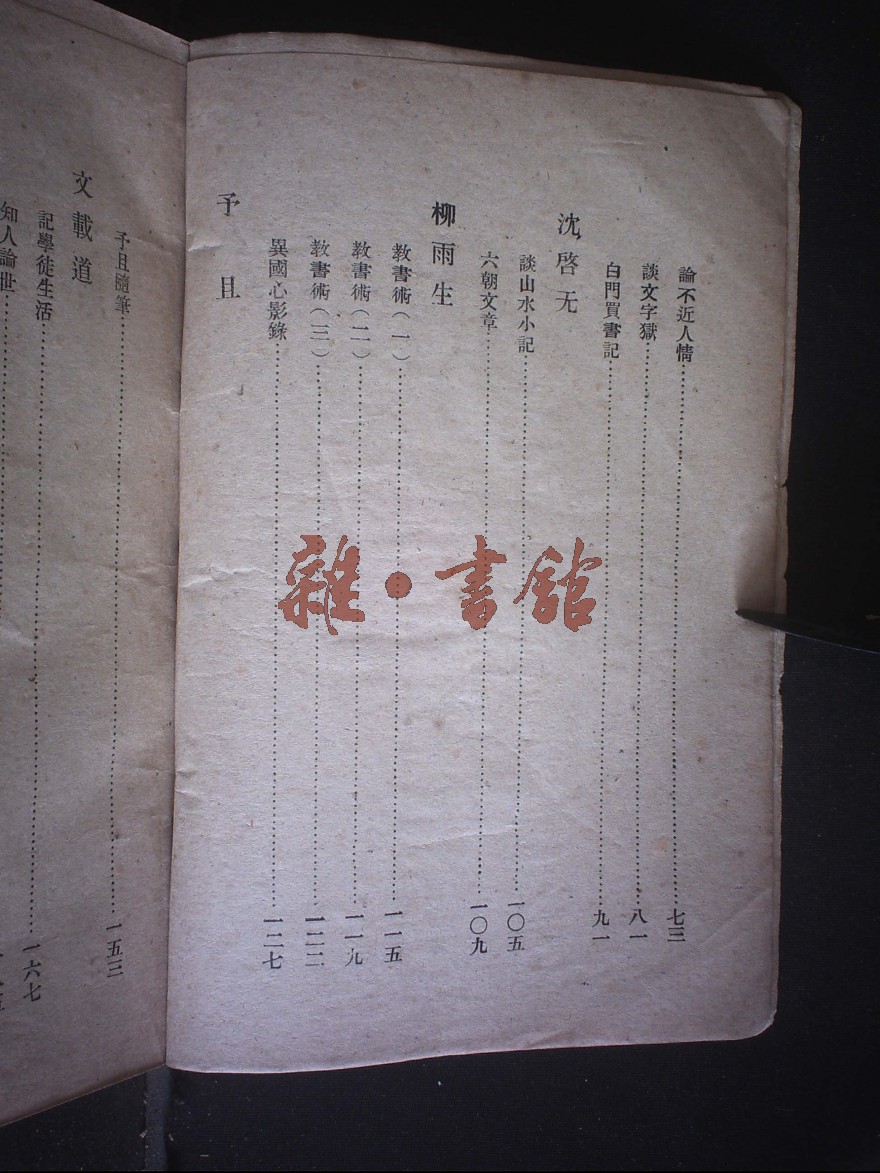 論不近人情……七三
談文字獄……八一
白門買書記……九一
沈啓无
談山水小記……一〇五
六朝文章……一〇九
柳雨生
教書術(一)……一一五
教書術(二)……一一九
教書術(三)……一二二
異國心影錄……一二七
予且
予且隨筆……一五三
文載道
記學徒生活……一六七
知人論世……
雜·書館